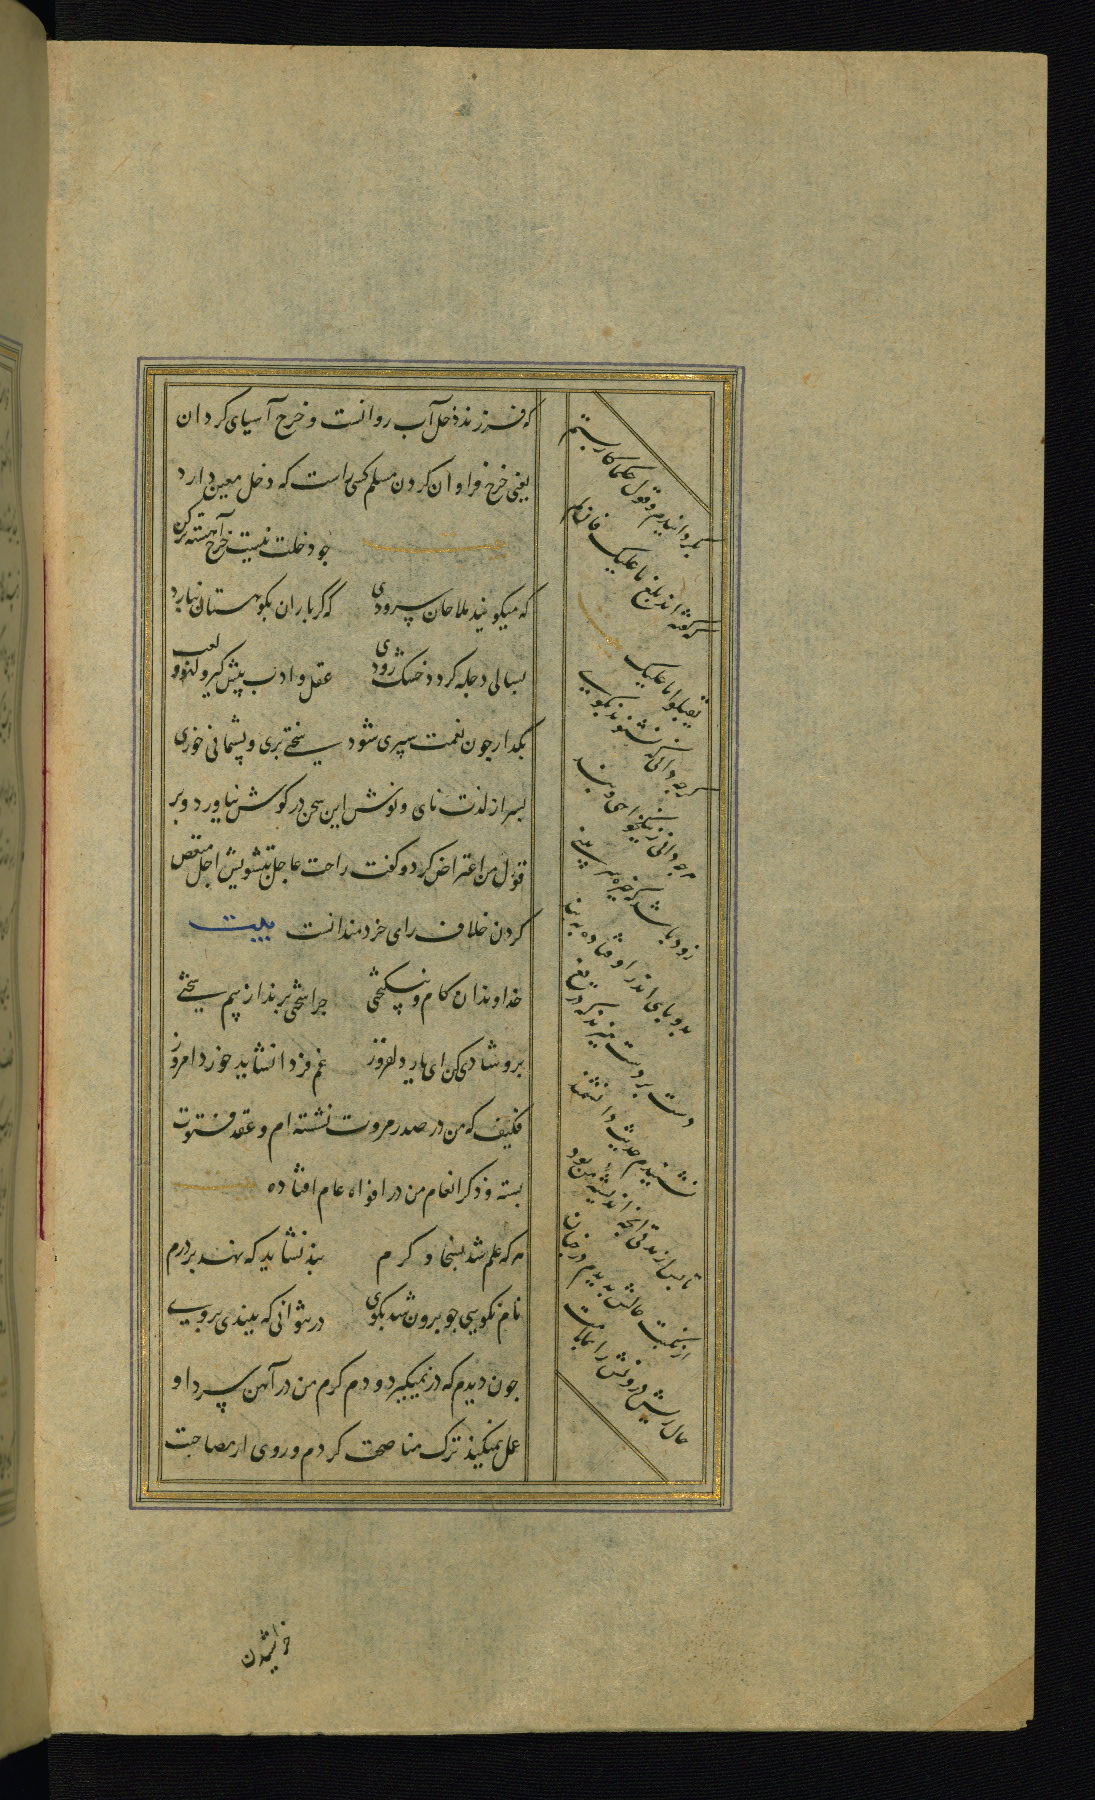 که فرزند دخل آب روانست و خرج آسیای کردان
یعنی خرج فراوان کردن مسلم کسی راست که دخل معین دارد
جو دخلت نیست خرج آهسته ترکن
که میکویند ملاحان سرودی که گر باران بکوهستان نبارد
بسالی دجله گردد خشک رودی عقل و ادب پیش کیر و لهو و لعب
بکدار جون نعمت سپری شود سختی بری و پشمانی خوری
پسر از لذت نای و نوش این سخن در کوش نیاورد و بر
قول من اعتراض کرد و کفت راحت عاجل بتشویش اجل منغص
کردن خلاف رای خردمندانست بیت
خداوندان کام و نیکبختی جرا سختی برند از بیم سختی
برو شادی کن ای یار دلفروز غم فردا نشاید خورد امروز
فکیف که من در صدر مروت نشسته ام و عقد فتوت
بسته و ذکر انعام من در افواه عام افتاده
هر که علم شد بسخا و کرم بند نشاید که نهد بر درم
نام نکویی جو برون شد بکوی در نتوانی که ببندی بروی
جون دیدم که در نمیکیرد و دم کرم من در آهن سرد او
عمل نمیکند ترک مناصحت کردم و روی از مصاحبت
بکردانیدم و قول حکما کار بستم
که گفته اند بلغ ما علیک فان لم
تقبلوا ما علیک
گرچه دانی که نشنوند بکوی
هر چه دانی ز نیکخواهی و پند
زود باشد که خیره سر بینی
بدو پای اندر اوفتاده ببند
دست بر دست میزند که دریغ
نشنیدم حدیث دانشمند
تا پس از مدتی انچه اندیشه من بود
از نکبت حالش بدیدم در خیان
حال ریش درونش را بملامت
خراشیدن